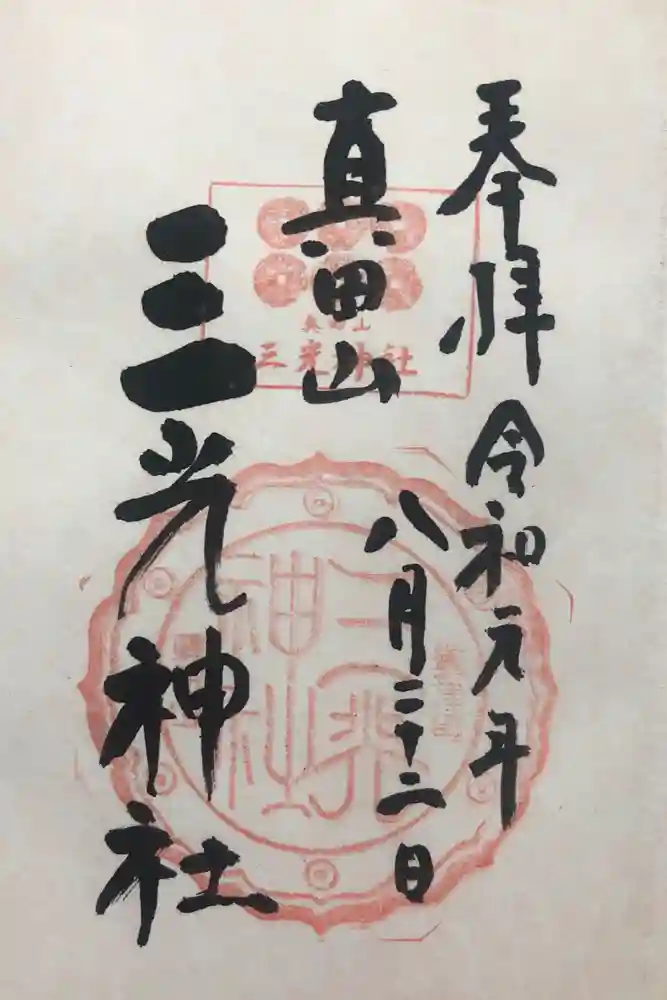 奉拝 令和元年
八月二十二日
真田山
三光神社
真田山
三光神社
三光神社